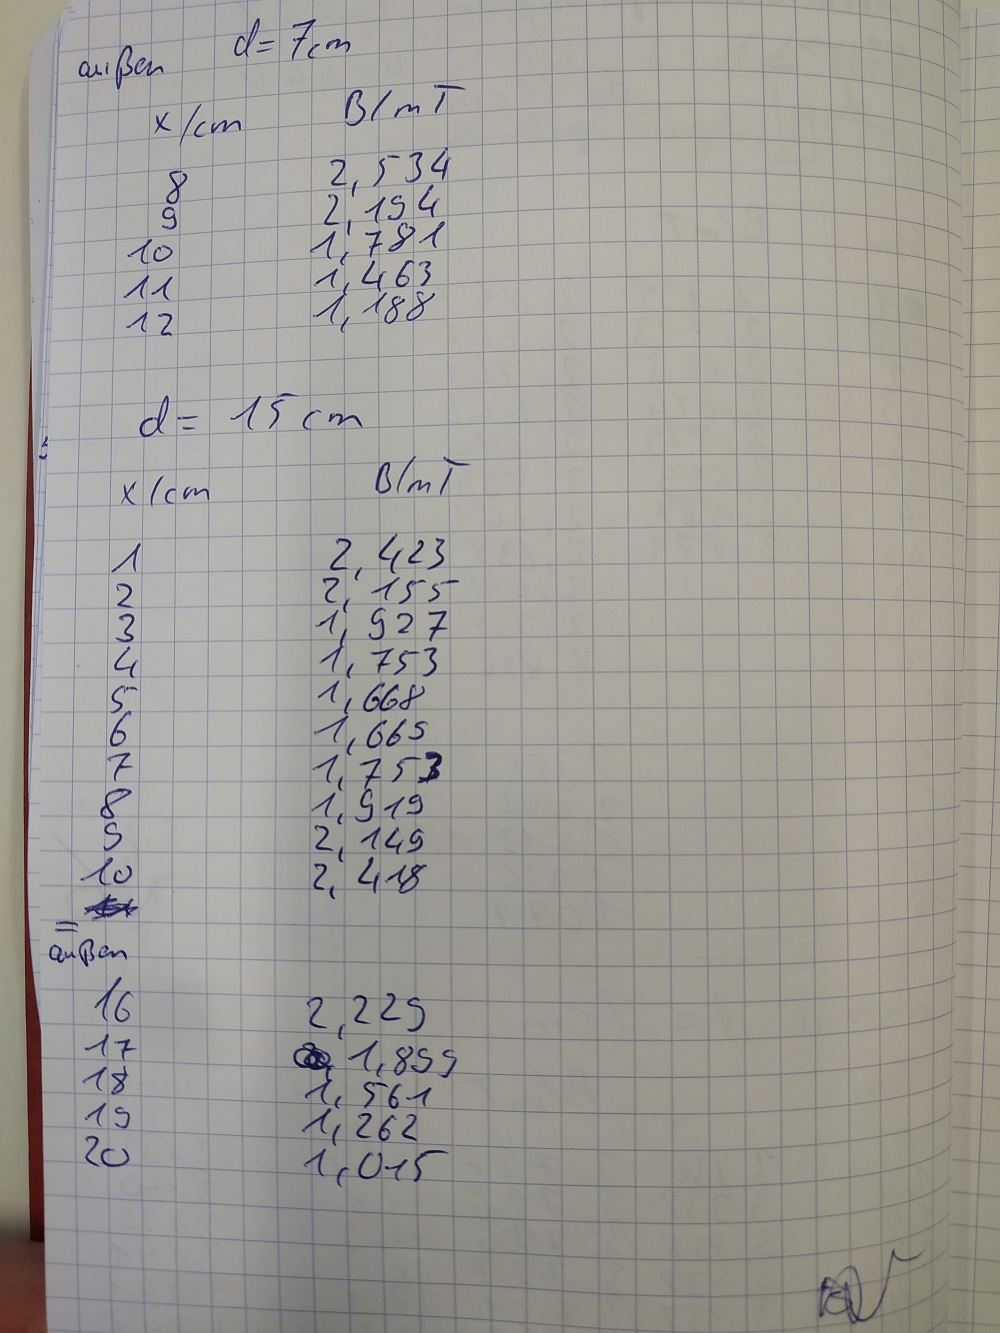 außen d = 7cm
x/cm B/mT
8 2,534
9 2,194
10 1,781
11 1,463
12 1,188
d = 15cm
x/cm B/mT
1 2,423
2 2,155
3 1,927
4 1,753
5 1,668
6 1,669
7 1,753
8 1,919
9 2,149
10 2,418
außen
16 2,229
17 1,899
18 1,561
19 1,262
20 1,015